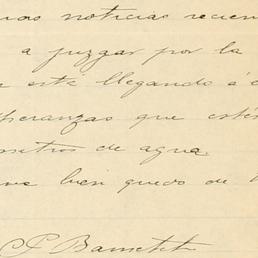 noticias recien
a juzgar por la
está llegando á
peranzas que estén
metros de agua.
bien quedo de